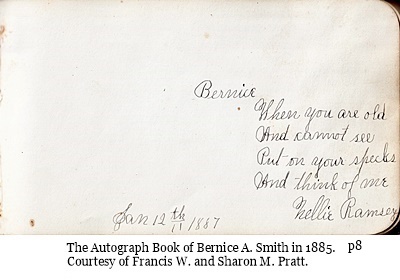 Bernice
When you are old
And cannot see
Put on your specks
And think of me
Nellie Ramsey
Jan 12th 1887
The Autograph Book of Bernice A. Smith in 1885. p8
Courtesy of Francis W. and Sharon M. Pratt.